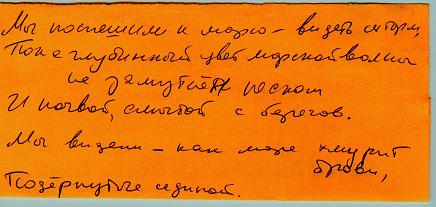 Мы поспешили к морю – видеть шторм,
Пока глубинный цвет морской волны
не замутнён песком
И почвой, смытой с берегов.
Мы видели – как море хмурит
брови,
Подёрнутые сединой.